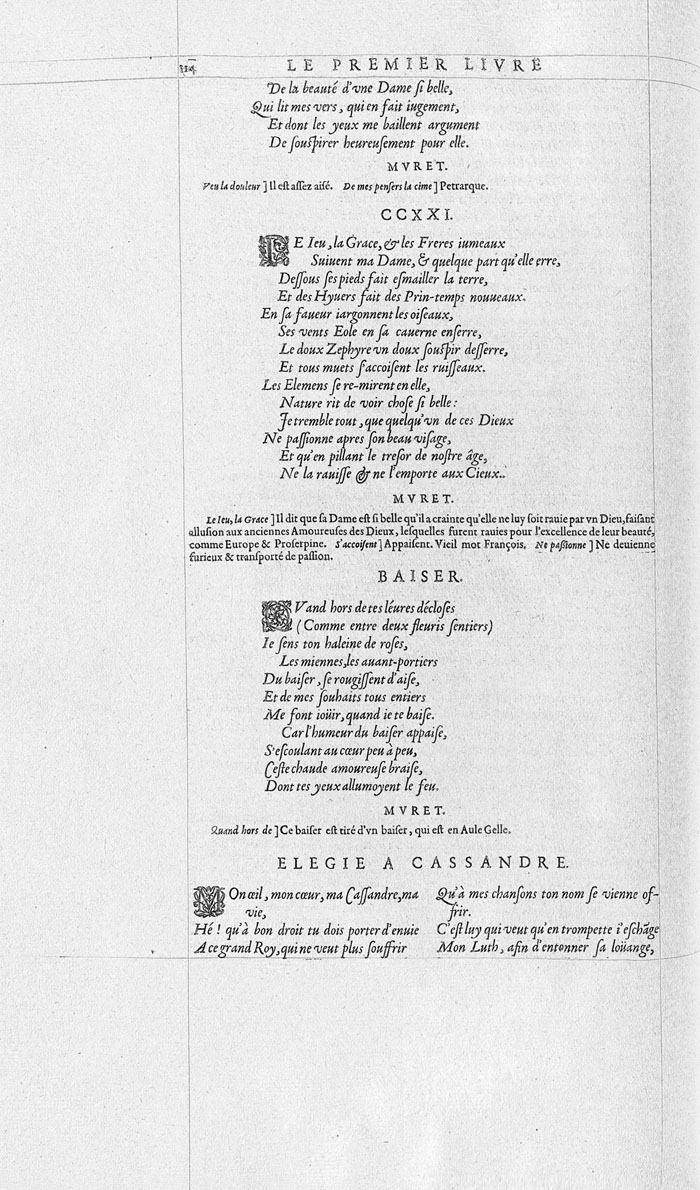 LE PREMIER LIVRE
De la beauté d'vne Dame ſi belle,
Qui lit mes vers, qui en fait iugement,
Et dont les yeux me baillent argument
De ſouſpirer heureuſement pour elle.
MVRET.
Veu la douleur ] Il eſt aſſez aiſé. De mes penſers la cime ] Petrarque.
CCXXI.
LE Ieu, la Grace, & les Freres iumeaux
Suiuent ma Dame, & quelque part qu'elle erre,
Deſſous ſes pieds fait eſmailler la terre,
Et des Hyuers fait des Prin-temps nouueaux.
En ſa faueur iargonnent les oiſeaux,
Ses vents Eole en ſa cauerne enſerre,
Le doux Zephyre vn doux ſouſpir deſſerre,
Et tous muets ſ'accoiſent les ruiſſeaux.
Les Elemens ſe re-mirent en elle,
Nature rit de voir choſe ſi belle :
Ie tremble tout, que quelqu'vn de ces Dieux
Ne paſſionne apres ſon beau viſage,
Et qu'en pillant le treſor de noſtre âge,
Ne la rauiſſe & ne l'emporte aux Cieux..
MVRET.
Le Ieu, la Grace ] Il dit que ſa Dame eſt ſi belle qu'il a crainte qu'elle ne luy ſoit rauie par vn Dieu, faiſant
alluſion aux anciennes Amoureuſes des Dieux, leſquelles furent rauies pour l'excellence de leur beauté,
comme Europe & Proſerpine. S'accoiſent ] Appaiſent. Vieil mot François. Ne paſſionne ] Ne deuienne
furieux & tranſporté de paſſion.
BAISER.
QVand hors de tes léures décloſes
(Comme entre deux fleuris ſentiers)
Ie ſens ton haleine de roſes,
Les miennes, les auant-portiers
Du baiſer, ſe rougiſſent d'aiſe,
Et de mes ſouhaits tous entiers
Me font ioüir, quand ie te baiſe.
Car l'humeur du baiſer appaiſe,
S'eſcoulant au cœur peu à peu,
Ceſte chaude amoureuſe braiſe,
Dont tes yeux allumoyent le feu.
MVRET.
Quand hors de ] Ce baiſer eſt tiré d'vn baiſer, qui eſt en Aule Gelle.
ELEGIE A CASSANDRE.
MOn œil, mon cœur, ma Caſſandre, ma
vie,
Hé ! qu'à bon droit tu dois porter d'enuie
A ce grand Roy, qui ne veut plus ſouffrir
Qu'à mes chanſons ton nom ſe vienne of-
frir.
C'eſt luy qui veut qu'en trompette i'eſchãge
Mon Luth, afin d'entonner ſa loüange,